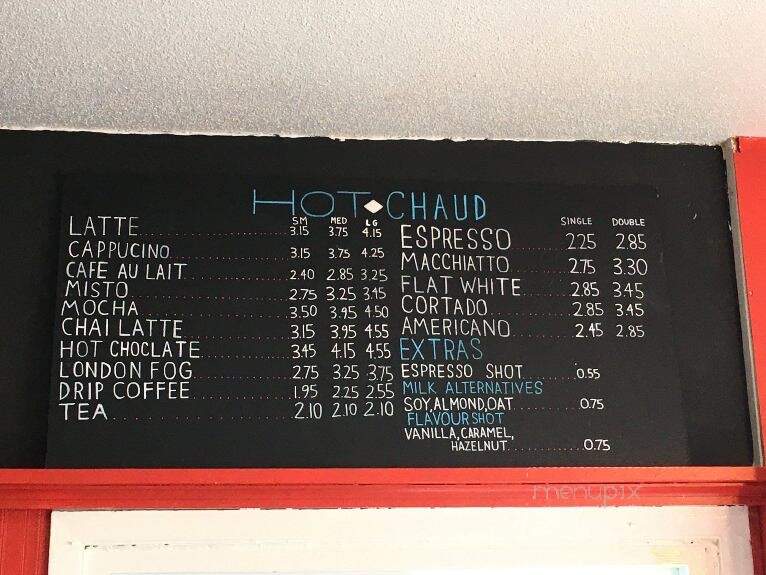 HOT CHAUD
SM MED LG
LATTE 3.15 3.75 4.15
CAPPUCINO 3.15 3.75 4.25
CAFE AU LAIT 2.40 2.85 3.25
MISTO 2.75 3.25 3.45
MOCHA 3.50 3.95 4.50
CHAI LATTE 3.15 3.95 4.55
HOT CHOCLATE 3.45 4.15 4.55
LONDON FOG 2.75 3.25 3.75
DRIP COFFEE 1.95 2.25 2.55
TEA 2.10 2.10 2.10
SINGLE DOUBLE
ESPRESSO 2.25 2.85
MACCHIATTO 2.75 3.30
FLAT WHITE 2.85 3.45
CORTADO 2.85 3.45
AMERICANO 2.45 2.85
EXTRAS
ESPRESSO SHOT 0.55
MILK ALTERNATIVES
SOY, ALMOND, OAT 0.75
FLAVOUR SHOT
VANILLA, CARAMEL,
HAZELNUT 0.75
menupix